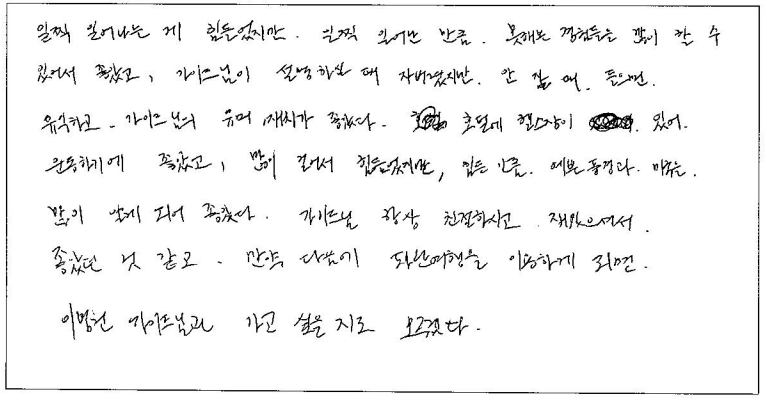 일찍 일어나는 게 힘들었지만. 일찍 일어난 만큼. 못해본 경험들을 많이 할 수
있어서 좋았고, 가이드님이 설명하실 때 자버렸지만. 안 잘 때. 들으면.
유익하고. 가이드님의 유머, 재치가 좋았다. 호텔에 헬스장이 있어.
운동하기에 좋았고, 많이 걸어서 힘들었지만, 힘든 만큼. 예쁜 풍경과.
많이 알게 되어 좋았다. 가이드님 항상 친절하시고 재밌으셔서.
좋았던 것 같고. 만약 다음에 이용하게 되면.
가이드님과 가고 싶은 지도 모르겠다.